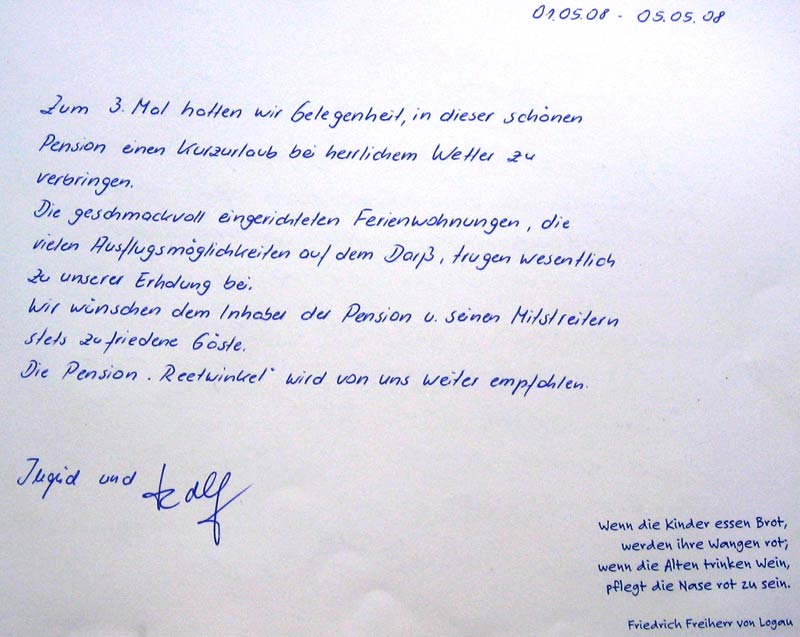 01.05.08 - 05.05.08
Zum 3. Mal hatten wir Gelegenheit, in dieser schönen
Pension einen Kurzurlaub bei herrlichem Wetter zu
verbringen.
Die geschmackvoll eingerichteten Ferienwohnungen, die
vielen Ausflugsmöglichkeiten auf dem Darß, trugen wesentlich
zu unserer Erholung bei.
Wir wünschen dem Inhaber der Pension u. seinen Mitstreitern
stets zufriedene Gäste.
Die Pension "Reetwinkel" wird von uns weiter empfohlen.
Ingrid und Ralf
Wenn die Kinder essen Brot,
werden ihre Wangen rot;
wenn die Alten trinken Wein,
pflegt die Nase rot zu sein.
Friedrich Freiherr von Logau